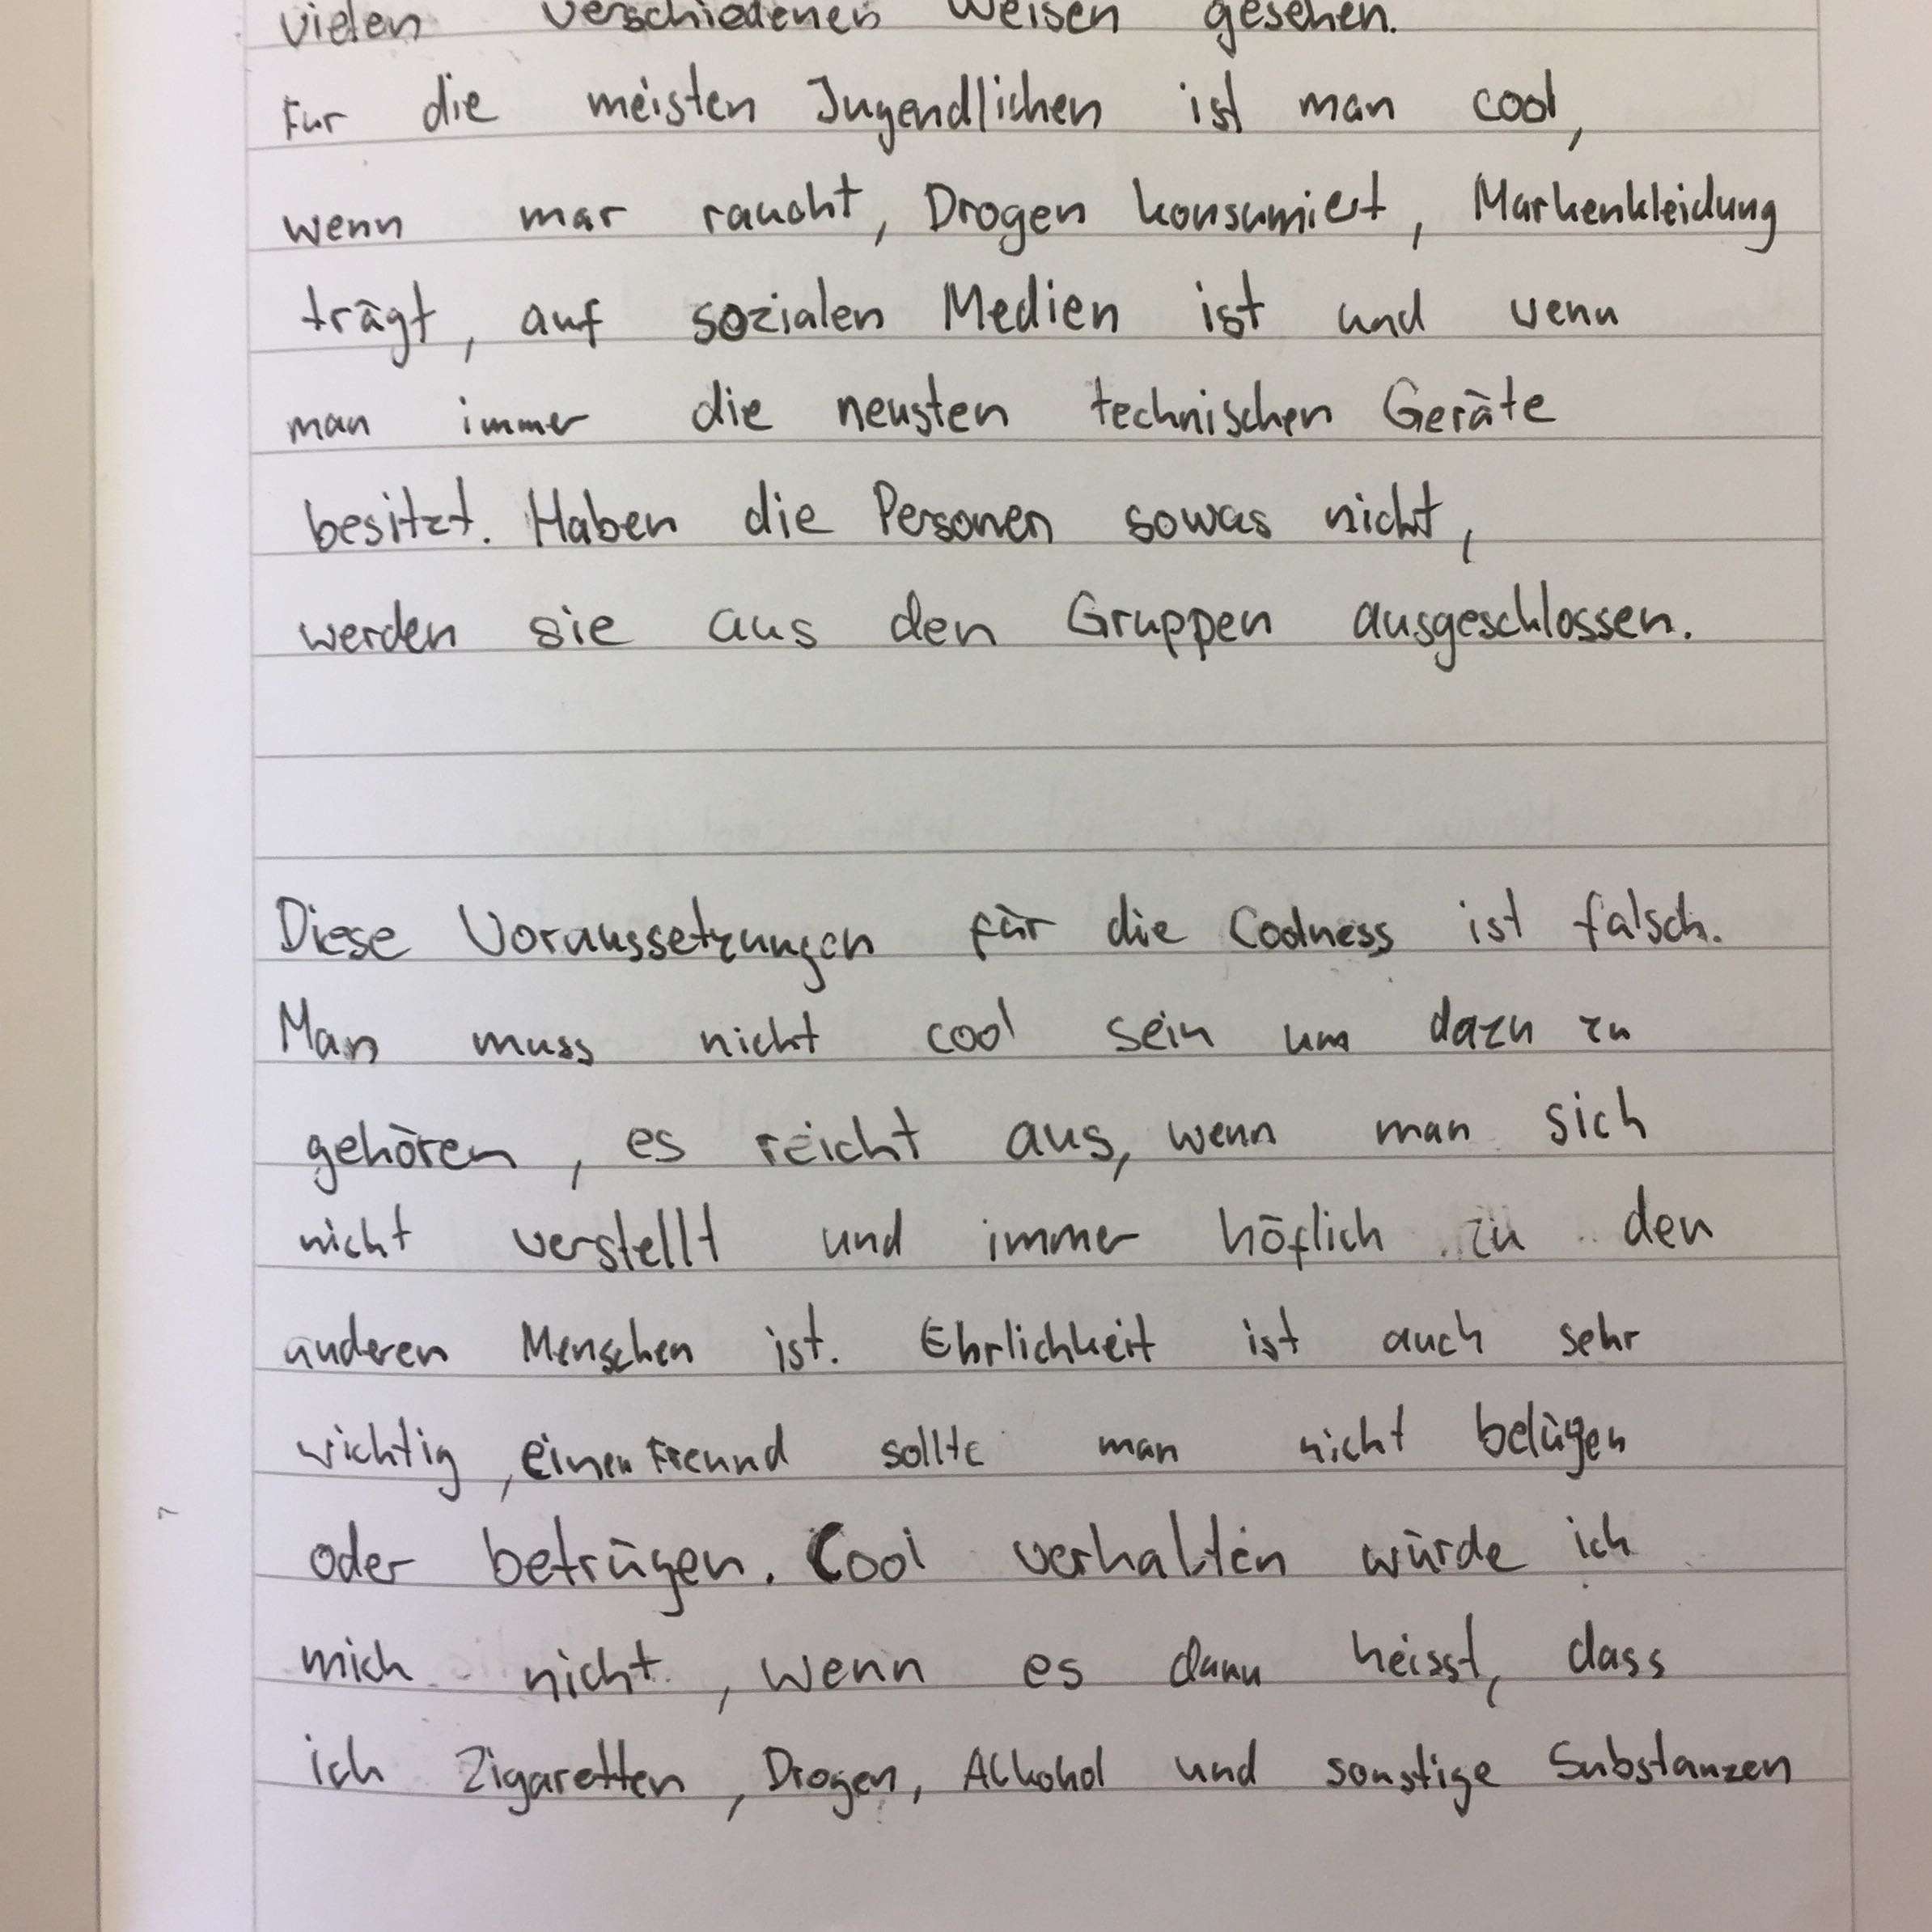 vielen verschiedenen Weisen gesehen.
Für die meisten Jugendlichen ist man cool,
wenn man raucht, Drogen konsumiert, Markenkleidung
trägt, auf sozialen Medien ist und wenn
man immer die neusten technischen Geräte
besitzt. Haben die Personen sowas nicht,
werden sie aus den Gruppen ausgeschlossen.
Diese Voraussetzungen für die Coolness ist falsch.
Man muss nicht cool sein um dazu zu
gehören, es reicht aus, wenn man sich
nicht verstellt und immer höflich zu den
anderen Menschen ist. Ehrlichkeit ist auch sehr
wichtig, einen Freund sollte man nicht belügen
oder betrügen. Cool verhalten würde ich
mich nicht, wenn es dann heisst, dass
ich Zigaretten, Drogen, Alkohol und sonstige Substanzen